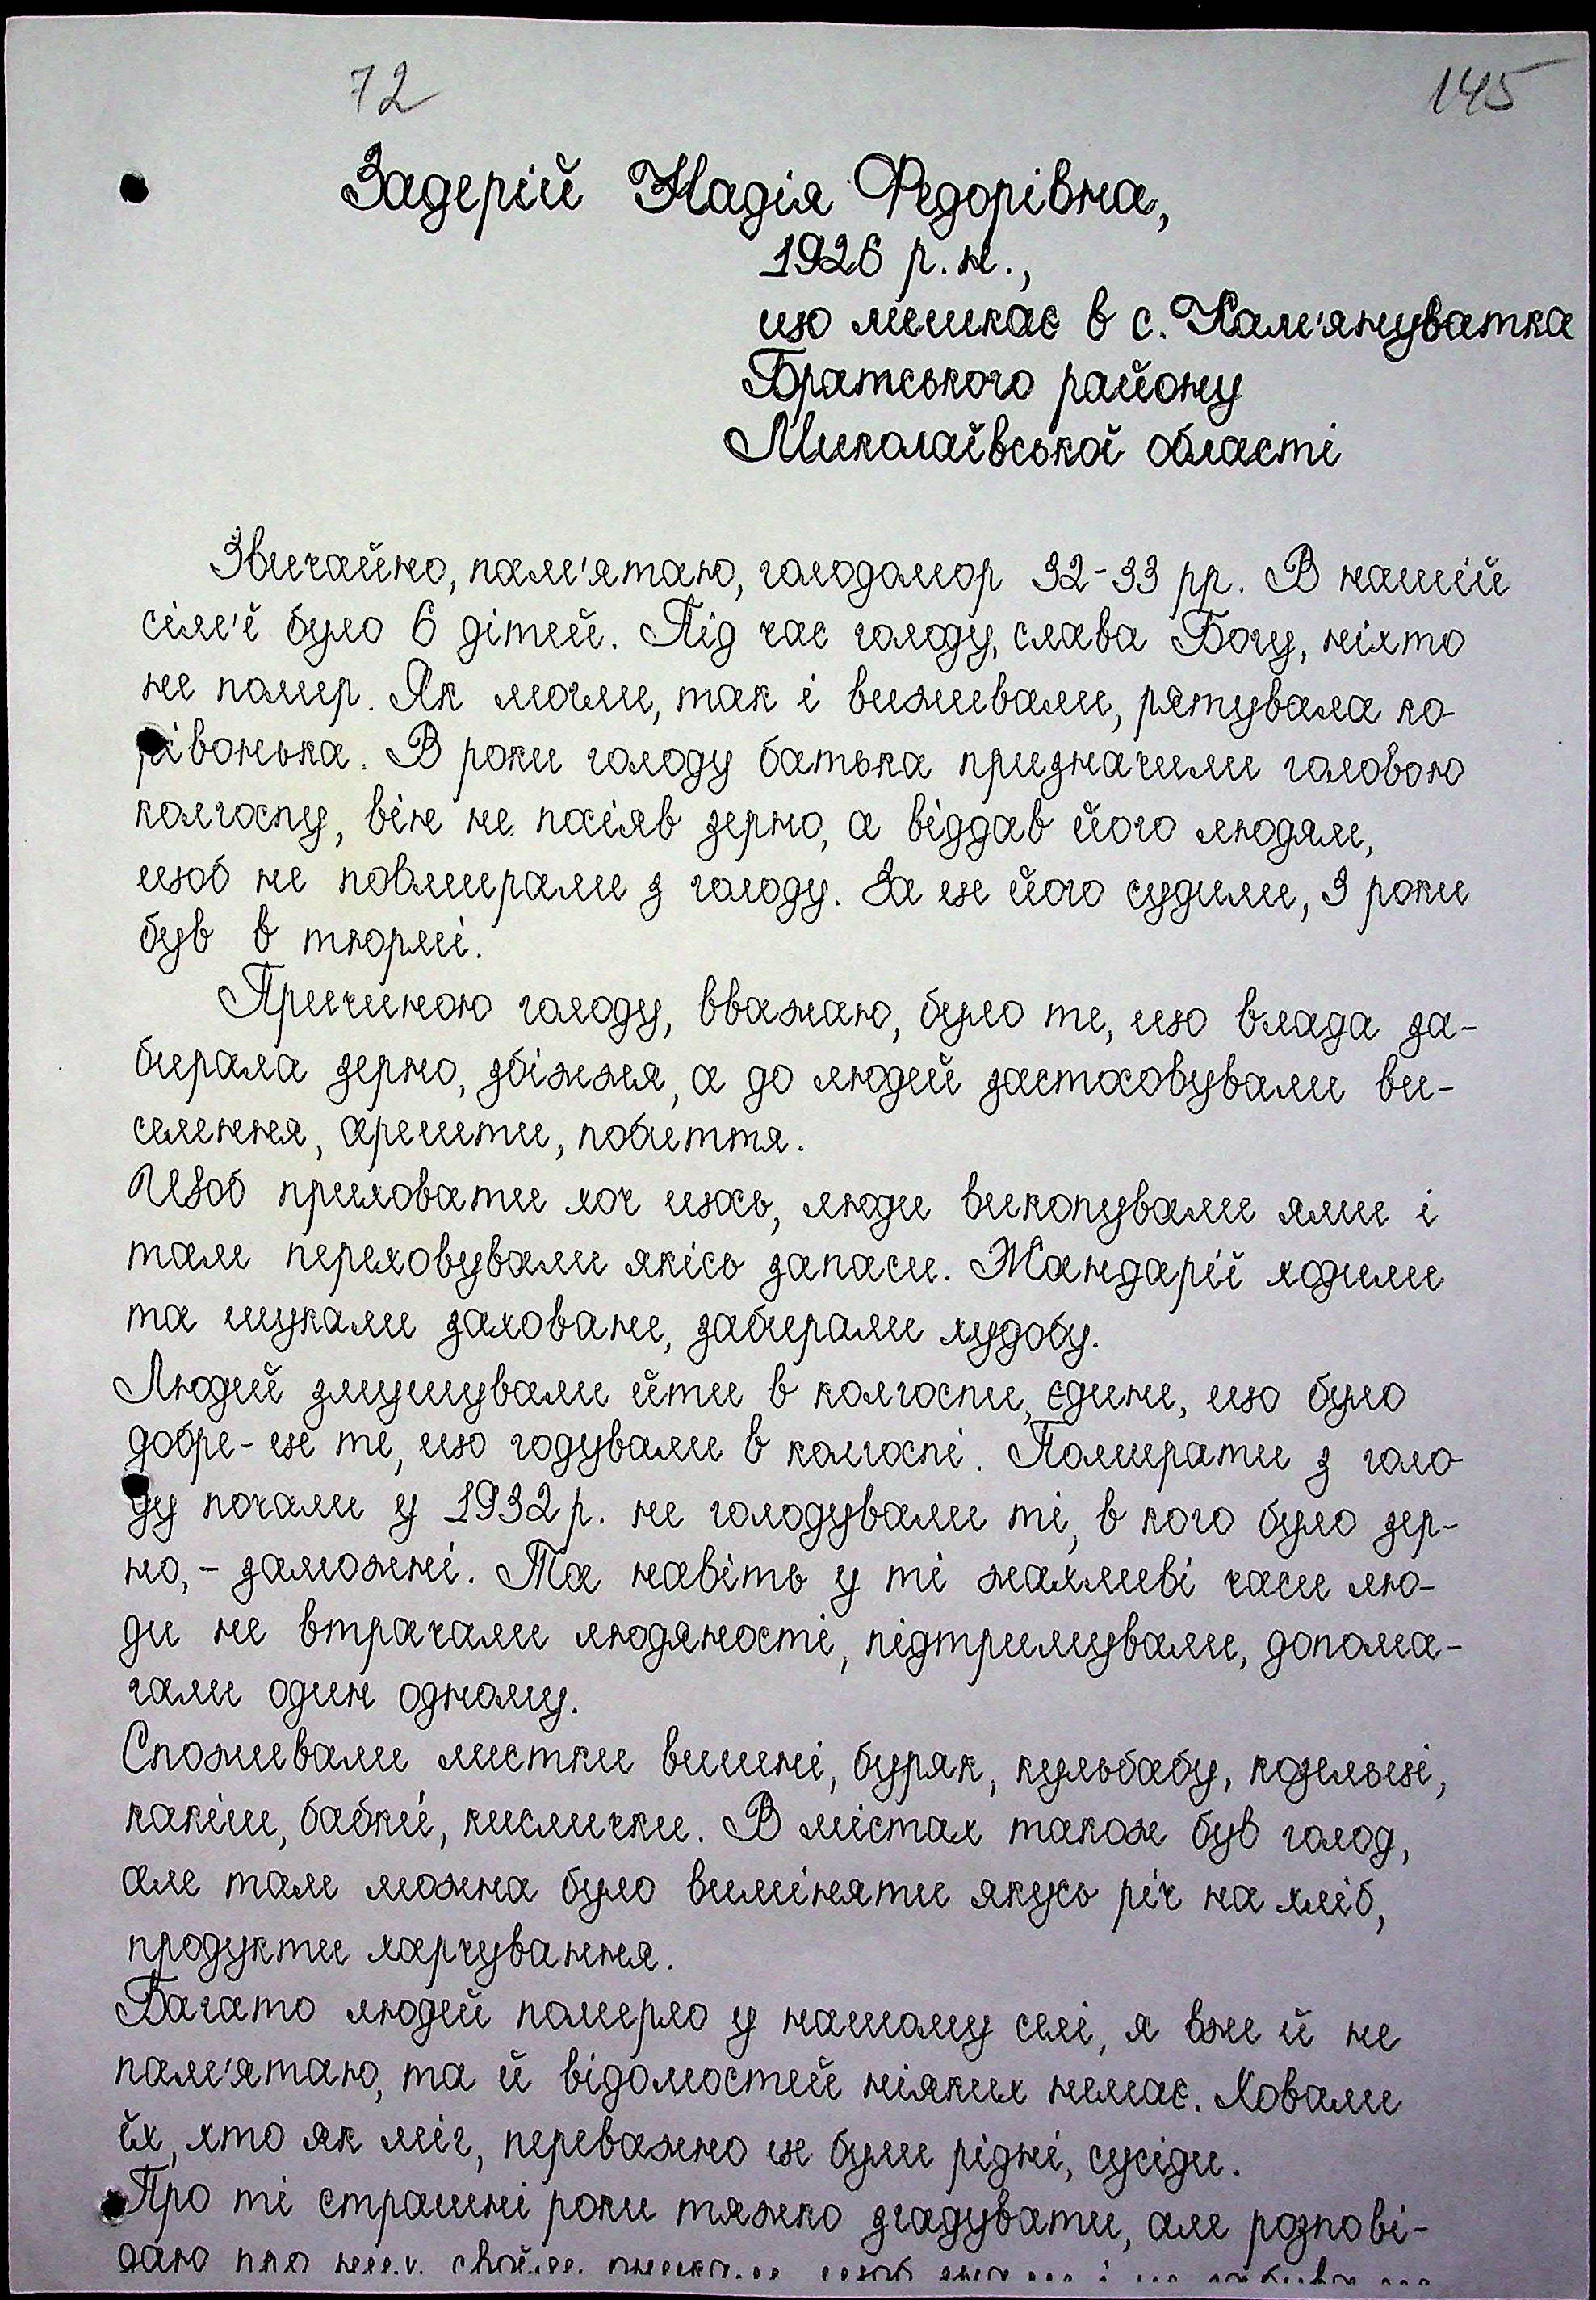 72
145
Задерій Надія Федорівна,
1926 р.н.,
що мешкає в с. Кам'януватка
Братського району
Миколаївської області
Звичайно, пам'ятаю, голодомор 32-33 рр. В нашій
сім'ї було 6 дітей. Під час голоду, слава Богу, ніхто
не помер. Як могли, так і виживали, рятувала ко-
рівонька. В роки голоду батька призначили головою
колгоспу, він не посіяв зерно, а віддав його людям,
щоб не повмирали з голоду. За це його судили, 3 роки
був в тюрмі.
Причиною голоду, вважаю, було те, що влада за-
бирала зерно, збіжжя, а до людей застосовували ви-
селення, арешти, побиття.
Щоб приховати хоч щось, люди викопували ями і
там переховували якісь запаси. Жандарії ходили
та шукали заховане, забирали худобу.
Людей змушували йти в колгоспи, єдине, що було
добре - це те, що годували в колгоспі. Помирати з голо
ду почали у 1932 р. не голодували ті, в кого було зер-
но, - заможні. Та навіть у ті жахливі часи лю-
ди не втрачали людяності, підтримували, допома-
гали один одному.
Споживали листки вишні, буряк, кульбабу, козельці,
какіш, бабкі, кислички. В містах також був голод,
але там можна було виміняти якусь річ на хліб,
продукти харчування.
Багато людей померло у нашому селі, я вже й не
пам'ятаю, та й відомостей ніяких немає. Ховали
їх, хто як міг, переважно це були рідні, сусіди.
Про ті страшні роки тяжко згадувати, але розпові-
даю про них своїм